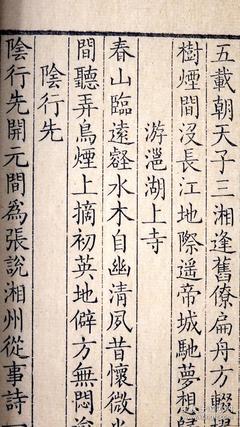 五載朝天子三湘逢舊僚扁舟方輟
樹煙間沒長江地際遥帝城馳夢想歸
游灉湖上寺
春山臨遠壑水木自幽清夙昔懷微
間聽弄鳥煙上摘初英地僻方無悶
陰行先
陰行先開元間為張說湘州從事詩一